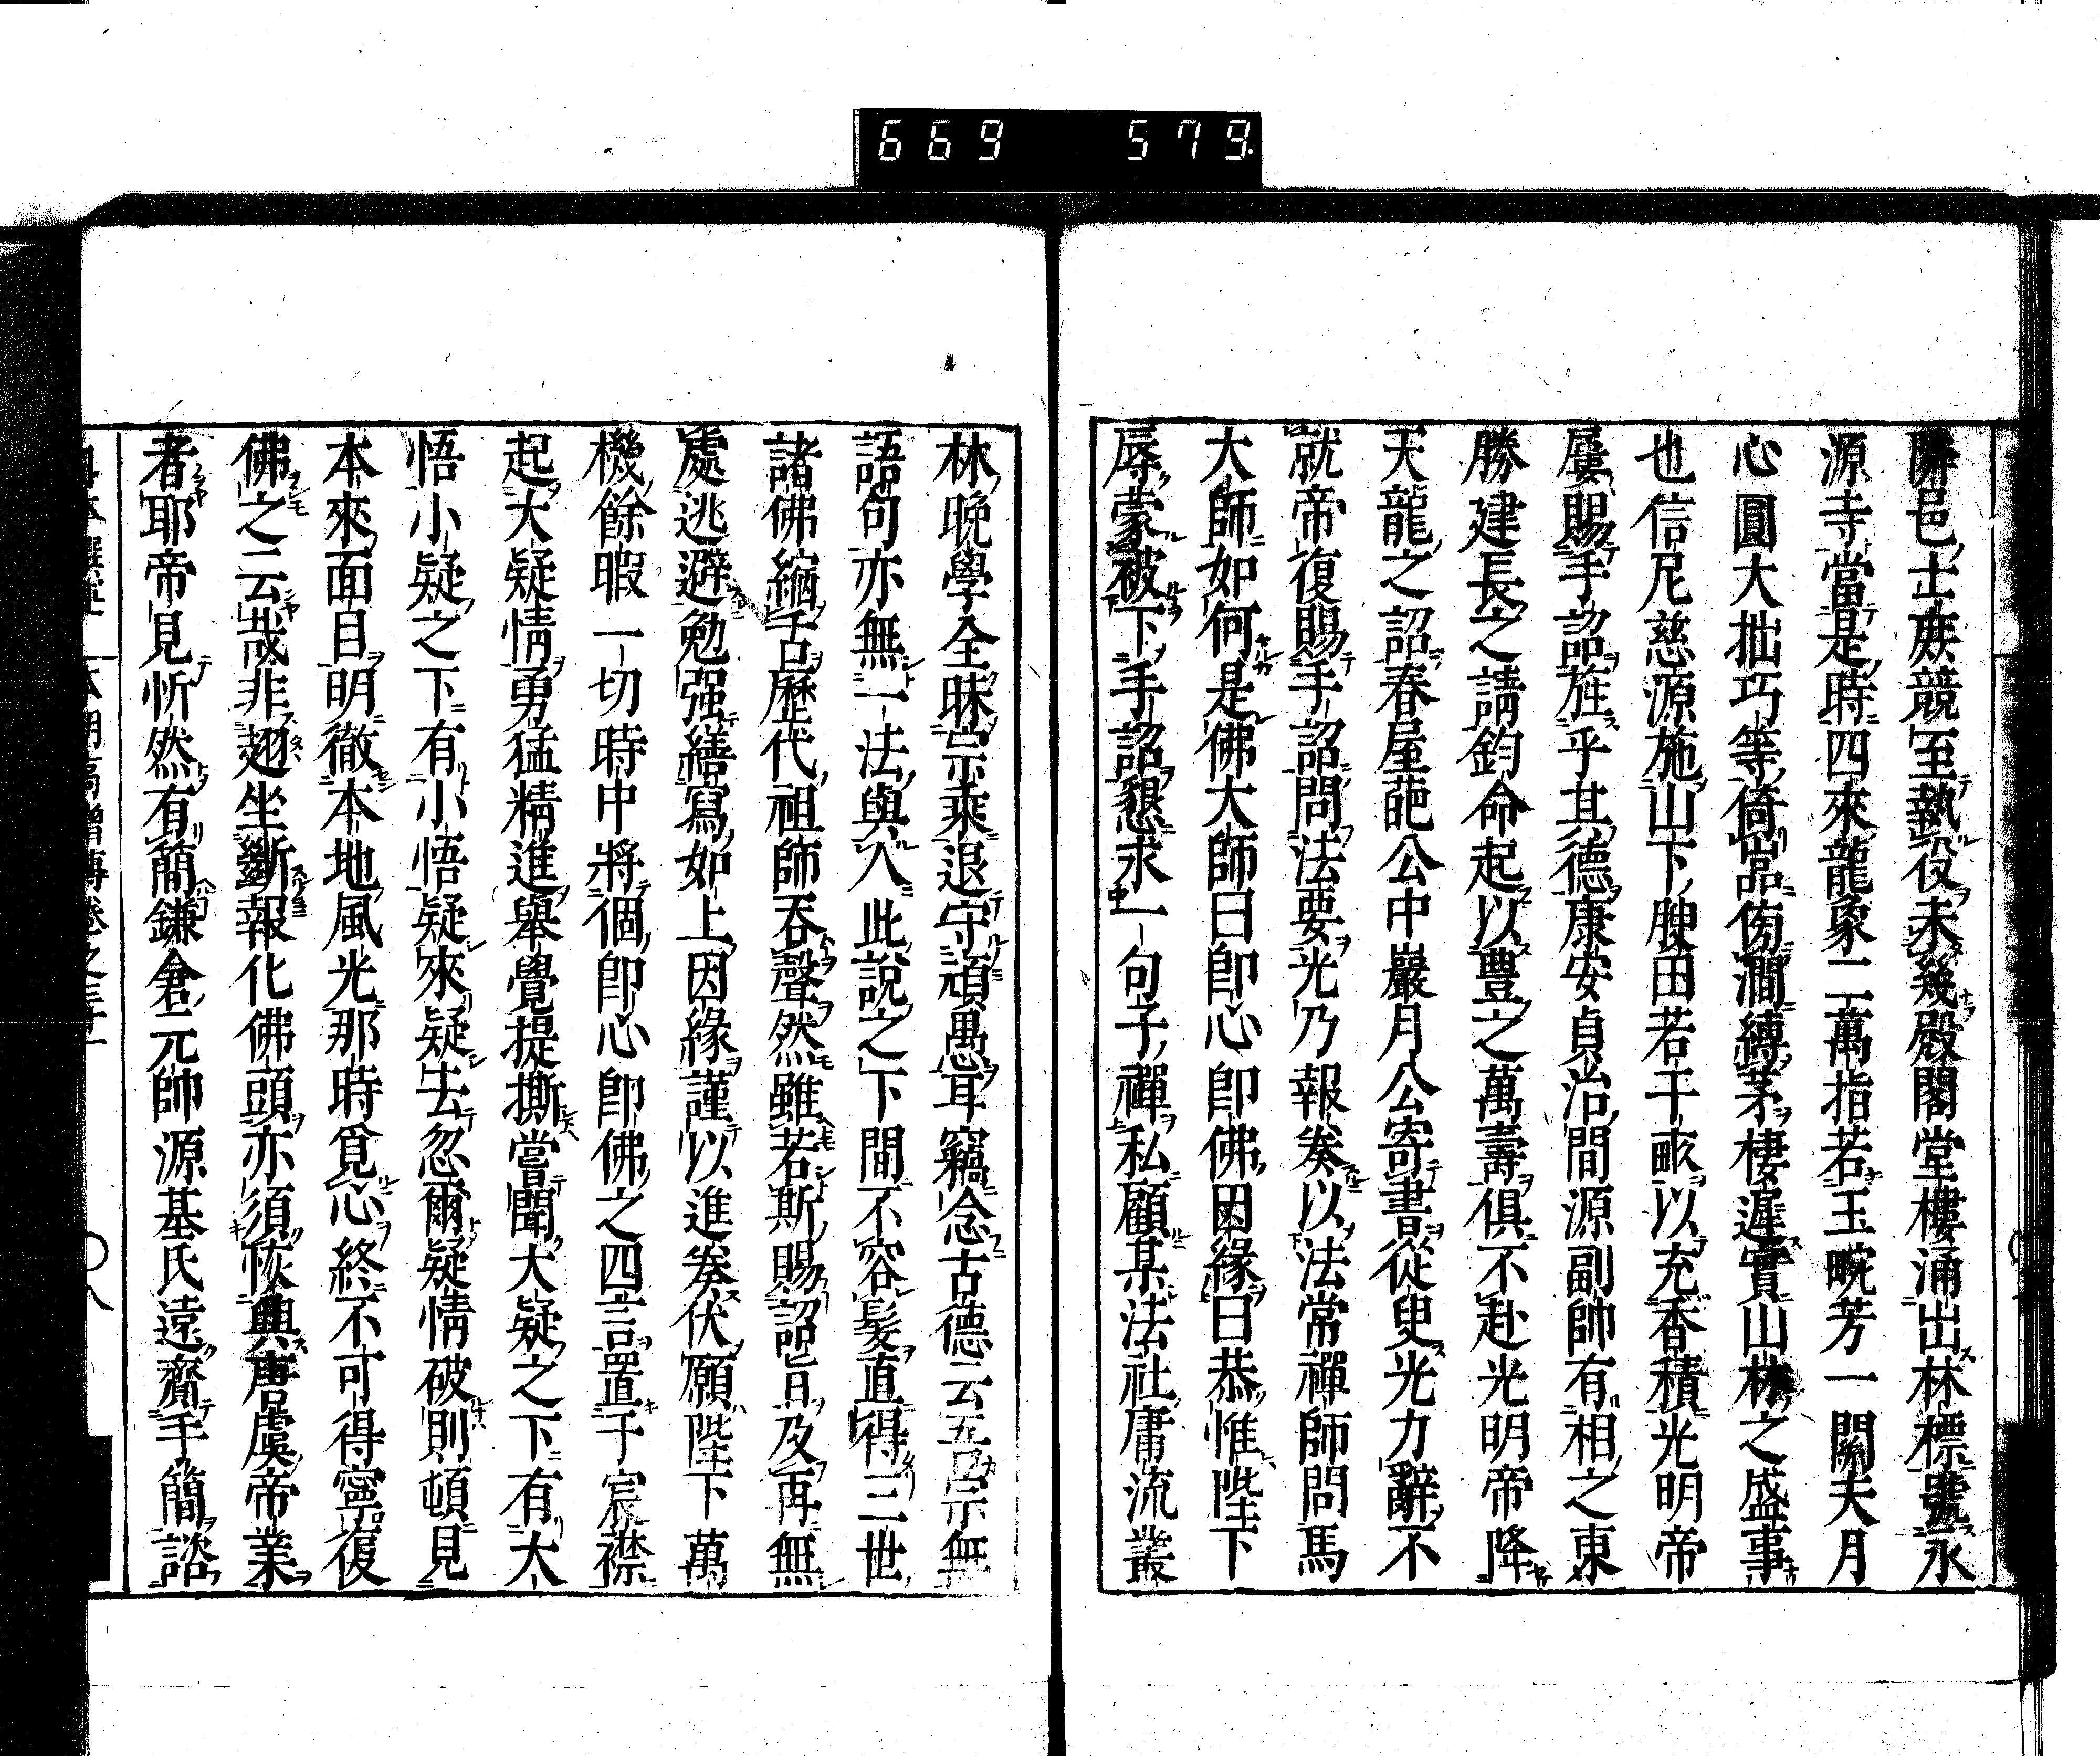 669 579
隣邑士庶競至執役未幾殿閣堂樓涌出林標號永
源寺當是時四來龍象二萬指若玉畹芳一關天月
心圓大拙巧等倚嵓傍澗縳茅棲遲實山林之盛事
也信尼慈源施山下腴田若干畞以充香積光明帝
屢賜手詔旌乎其德康安貞治間源副帥有相之東
勝建長之請鈞命起以豊之萬壽俱不赴光明帝降
天龍之詔春屋葩公中巖月公寄書從臾光力辭不
就帝復賜手詔問法要光乃報奏以法常禪師問馬
大師如何是佛大師曰卽心卽佛因緣曰恭惟陛下
辱蒙被下手詔懇求一句子禪私顧某法社庸流叢
林晚學全昧宗乘退守頑愚耳竊念古德云吾宗無
語句亦無一法與人此說之下間不容髮直得三世
諸佛縮舌歷代祖師吞聲然雖若斯賜詔旨及再無
處逃避勉强繕寫如上因緣謹以進奏伏願陛下萬
機餘暇一切時中將個卽心卽佛之四言置于宸襟
起大疑情勇猛精進舉覺提撕嘗聞大疑之下有大
悟小疑之下有小悟疑來疑去忽爾疑情破則頓見
本來面目明徹本地風光那時覓心終不可得寧復
佛之云哉非翅坐斷報化佛頭亦須恢興唐虞帝業
者耶帝見忻然有簡鎌倉元帥源基氏遠齎手簡諮
本朝高僧傳卷之三十 〇八